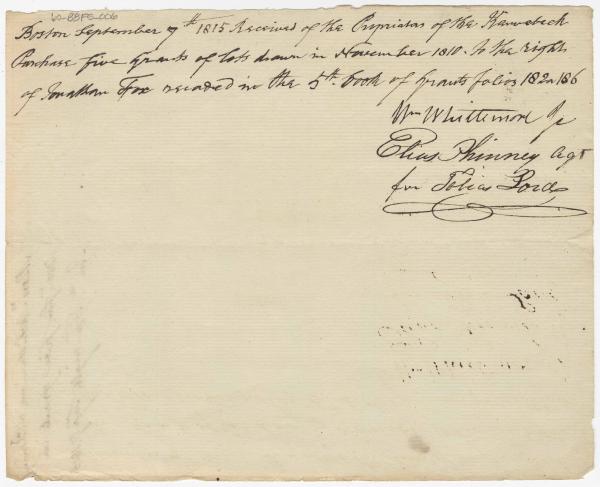 60-BBFG-006
Boston September 7th 1815 Received of the Propriators of the Kennebeck
Purchase five Grants of lots drawn in November 1810. to the right
of Jonathan Fox recorded in the 5th book of Grants folios 182 186
Wm Whittemore Jr
Elias Phinney Agt
for Tobias Lord